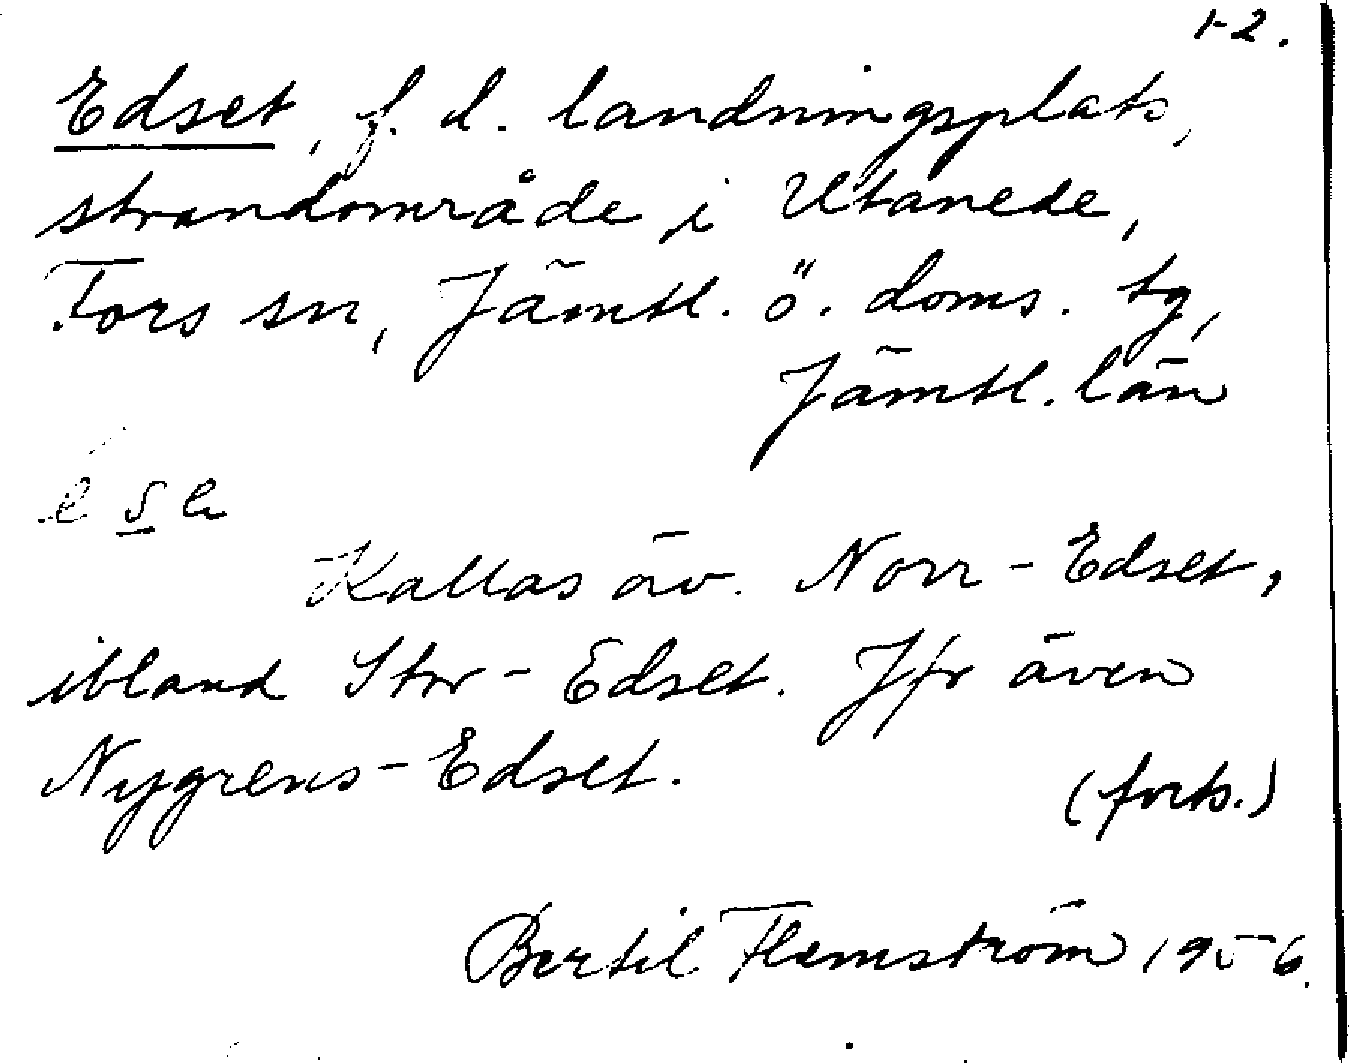 1-2.
Edset, f. d. landningsplats,
strandområde i Utanede,
Fors sn, Jämtl. ö. doms. tg,
Jämtl. län
Kallas äv. Norr-Edset,
ibland Stor-Edset. Jfr även
Nygrens-Edset.
(forts.)
Bertil Flemström 1956.